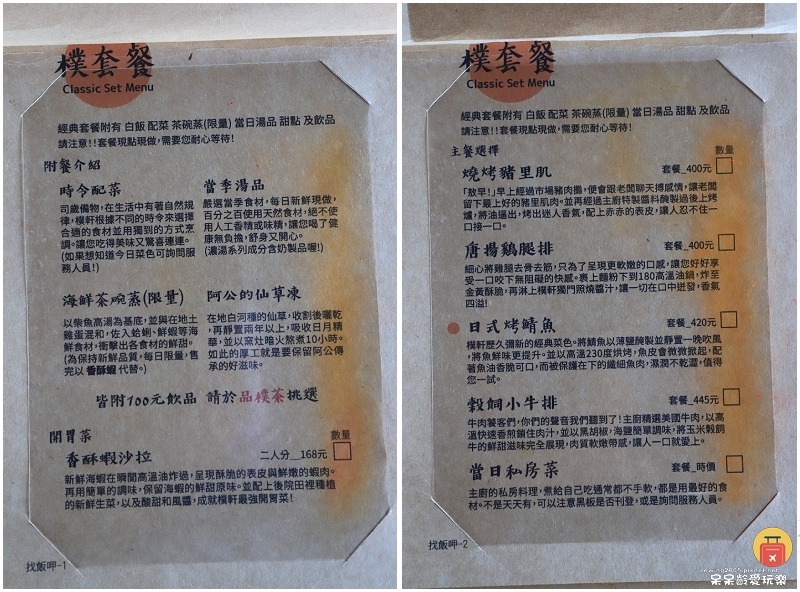 樸套餐
Classic Set Menu
經典套餐附有 白飯 配菜 茶碗蒸(限量) 當日湯品 甜點 及飲品
請注意!!套餐現點現做,需要您耐心等待!
附餐介紹
時令配菜
司歲備物,在生活中有著自然規
律,樸軒根據不同的時令來選擇
合適的食材並用獨到的方式烹
調。讓您吃得美味又驚喜連連。
(如果想知道今日菜色可詢問服
務人員!)
當季湯品
嚴選當季食材,每日新鮮現做,
百分之百使用天然食材,絕不使
用人工香精或味精,讓您喝了健
康無負擔,舒身又開心。
(濃湯系列成分含奶製品喔!)
海鮮茶碗蒸(限量)
以柴魚高湯為基底,並與在地土
雞蛋混和,佐入蛤蜊、鮮蝦等海
鮮食材,衝擊出各食材的鮮甜。
(為保持新鮮品質,每日限量,售
完以 香酥蝦 代替。)
阿公的仙草凍
在地白河種的仙草,收割後曬乾
,再靜置兩年以上,吸收日月精
華,並以窯灶暗火熬煮10小時。
如此的厚工就是要保留阿公傳
承的好滋味。
皆附100元飲品 請於品樸茶挑選
開胃菜
數量
香酥蝦沙拉 二人分__168元
新鮮海蝦在瞬間高溫油炸過,呈現酥脆的表皮與鮮嫩的蝦肉。
再用簡單的調味,保留海蝦的鮮甜原味。並配上後院田裡種植
的新鮮生菜,以及酸甜和風醬,成就樸軒最強開胃菜!
找飯呷-1
樸套餐
Classic Set Menu
經典套餐附有 白飯 配菜 茶碗蒸(限量) 當日湯品 甜點 及飲品
請注意!!套餐現點現做,需要您耐心等待!
主餐選擇
數量
燒烤豬里肌 套餐_400元
「敖早!」早上經過市場豬肉攤,便會跟老闆聊天搏感情,讓老闆
留下最上好的豬里肌肉。並再經過主廚特製醬料醃製過後上烤
爐,將油逼出,烤出迷人香氣,配上赤赤的表皮,讓人忍不住一
口接一口。
唐揚鷄腿排 套餐_400元
細心將雞腿去骨去筋,只為了呈現更軟嫩的口感,讓您好好享
受一口咬下無阻礙的快感。裹上麵粉下到180高溫油鍋,炸至
金黃酥脆,再淋上樸軒獨門照燒醬汁,讓一切在口中迸發,香氣
四溢!
日式烤鯖魚 套餐_420元
樸軒歷久彌新的經典菜色。將鯖魚以薄鹽醃製並靜置一晚吹風
,將魚鮮味更提升。並以高溫230度烘烤,魚皮會微微掀起,配
著魚油香脆可口,而被保護在下的纖細魚肉,濕潤不乾澀,值得
您一試。
穀飼小牛排 套餐_445元
牛肉饕客們,你們的聲音我們聽到了!主廚精選美國牛肉,以高
溫快速香煎鎖住肉汁,並以黑胡椒,海鹽簡單調味,將玉米穀飼
牛的鮮甜滋味完全展現,肉質軟嫩帶感,讓人一口就愛上。
當日私房菜 套餐_時價
主廚的私房料理,煮給自己吃通常都不手軟,都是用最好的食
材。不是天天有,可以注意黑板是否刊登,或是詢問服務人員。
找飯呷-2
rowing2005.pixnet.net
呆呆齡愛玩樂